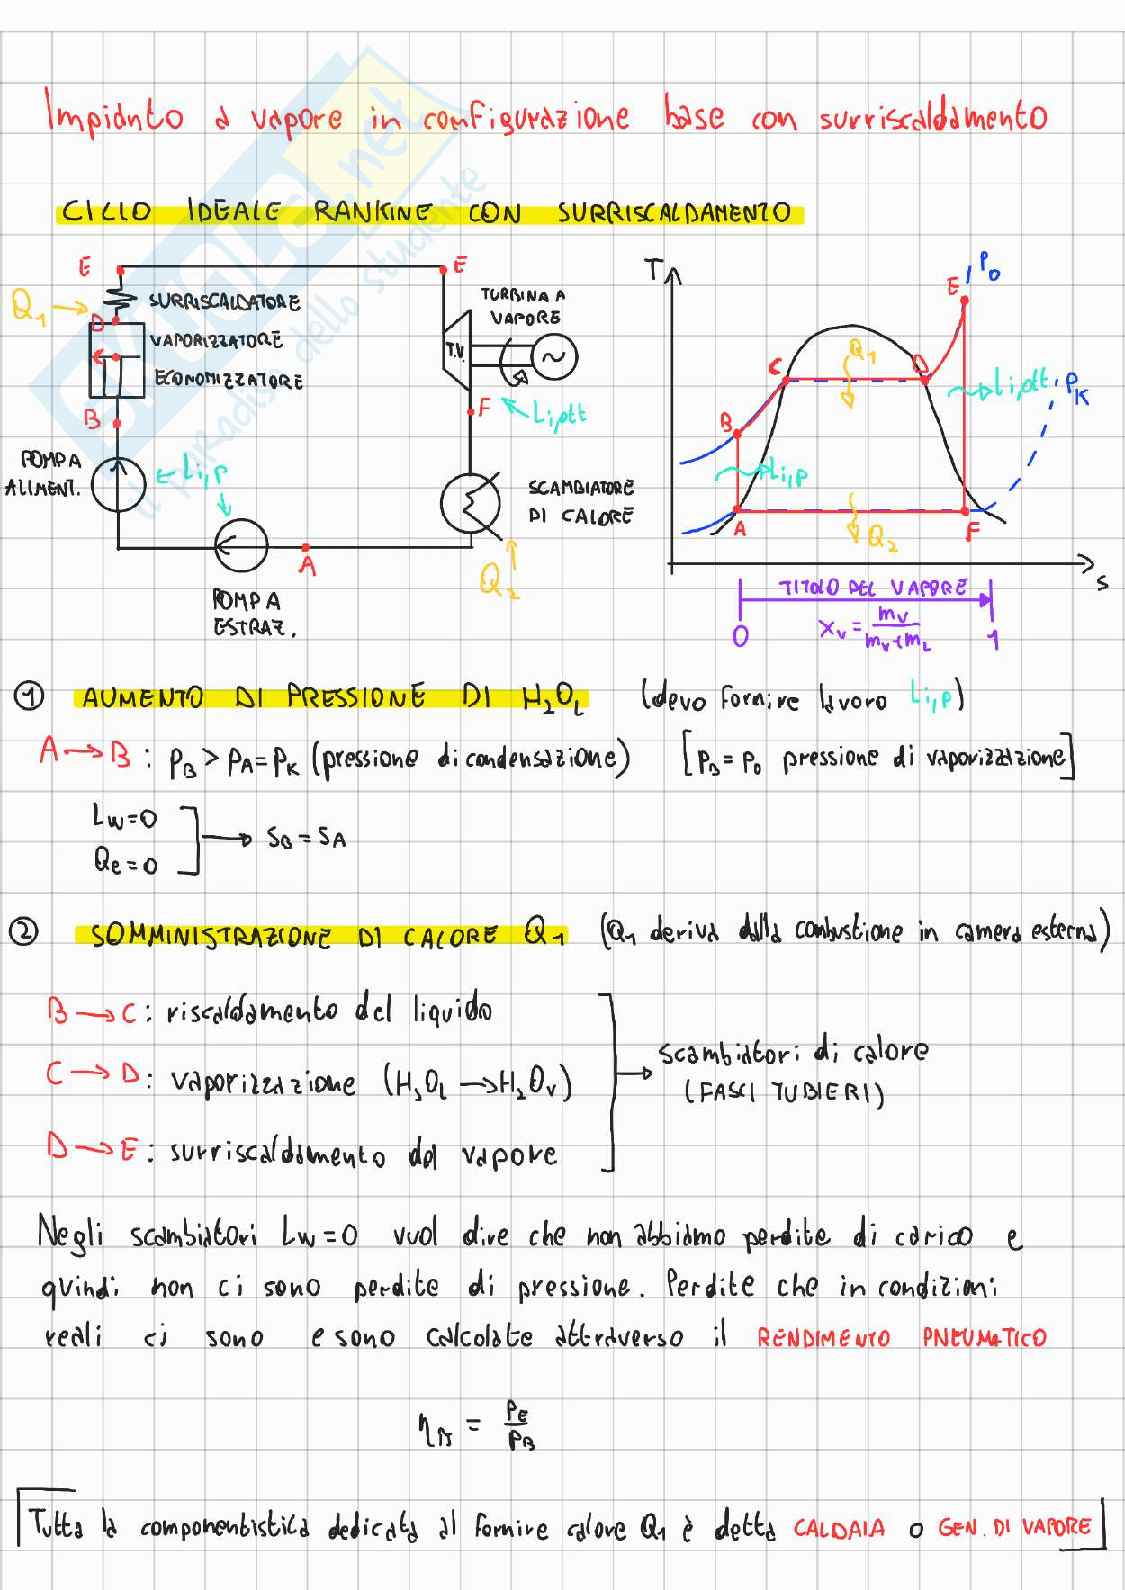 Impianto a vapore in configurazione base con surriscaldamento
CICLO IDEALE RANKINE CON SURRISCALDAMENTO
E
E
Q1
SURRISCALDATORE
D
VAPORIZZATORE
C
ECONOMIZZATORE
B
POMPA
ALIMENT.
Li,p
POMPA
ESTRAZ.
A
TURBINA A
VAPORE
T.V.
F
Li,ptt
SCAMBIATORE
DI CALORE
Q2
T
P0
E
Q1
C
D
Li,ptt
PK
B
Li,p
A
Q2
F
s
TITOLO DEL VAPORE
0
xv = mv / mv+mL
1
1 AUMENTO DI PRESSIONE DI H2OL (devo fornire lavoro Li,p)
A → B : pB > pA = pK (pressione di condensazione) [pB = p0 pressione di vaporizzazione]
Lw=0
Qe=0 → SB = SA
2 SOMMINISTRAZIONE DI CALORE Q1 (Q1 deriva dalla combustione in camera esterna)
B → C : riscaldamento del liquido
C → D : vaporizzazione (H2OL → H2OV)
D → E : surriscaldamento del vapore
scambiatori di calore
(FASCI TUBIERI)
Negli scambiatori Lw=0 vuol dire che non abbiamo perdite di carico e
quindi non ci sono perdite di pressione. Perdite che in condizioni
reali ci sono e sono calcolate attraverso il RENDIMENTO PNEUMATICO
ηπ = pE / pB
Tutta la componentistica dedicata al fornire calore Q1 è detta CALDAIA o GEN. DI VAPORE